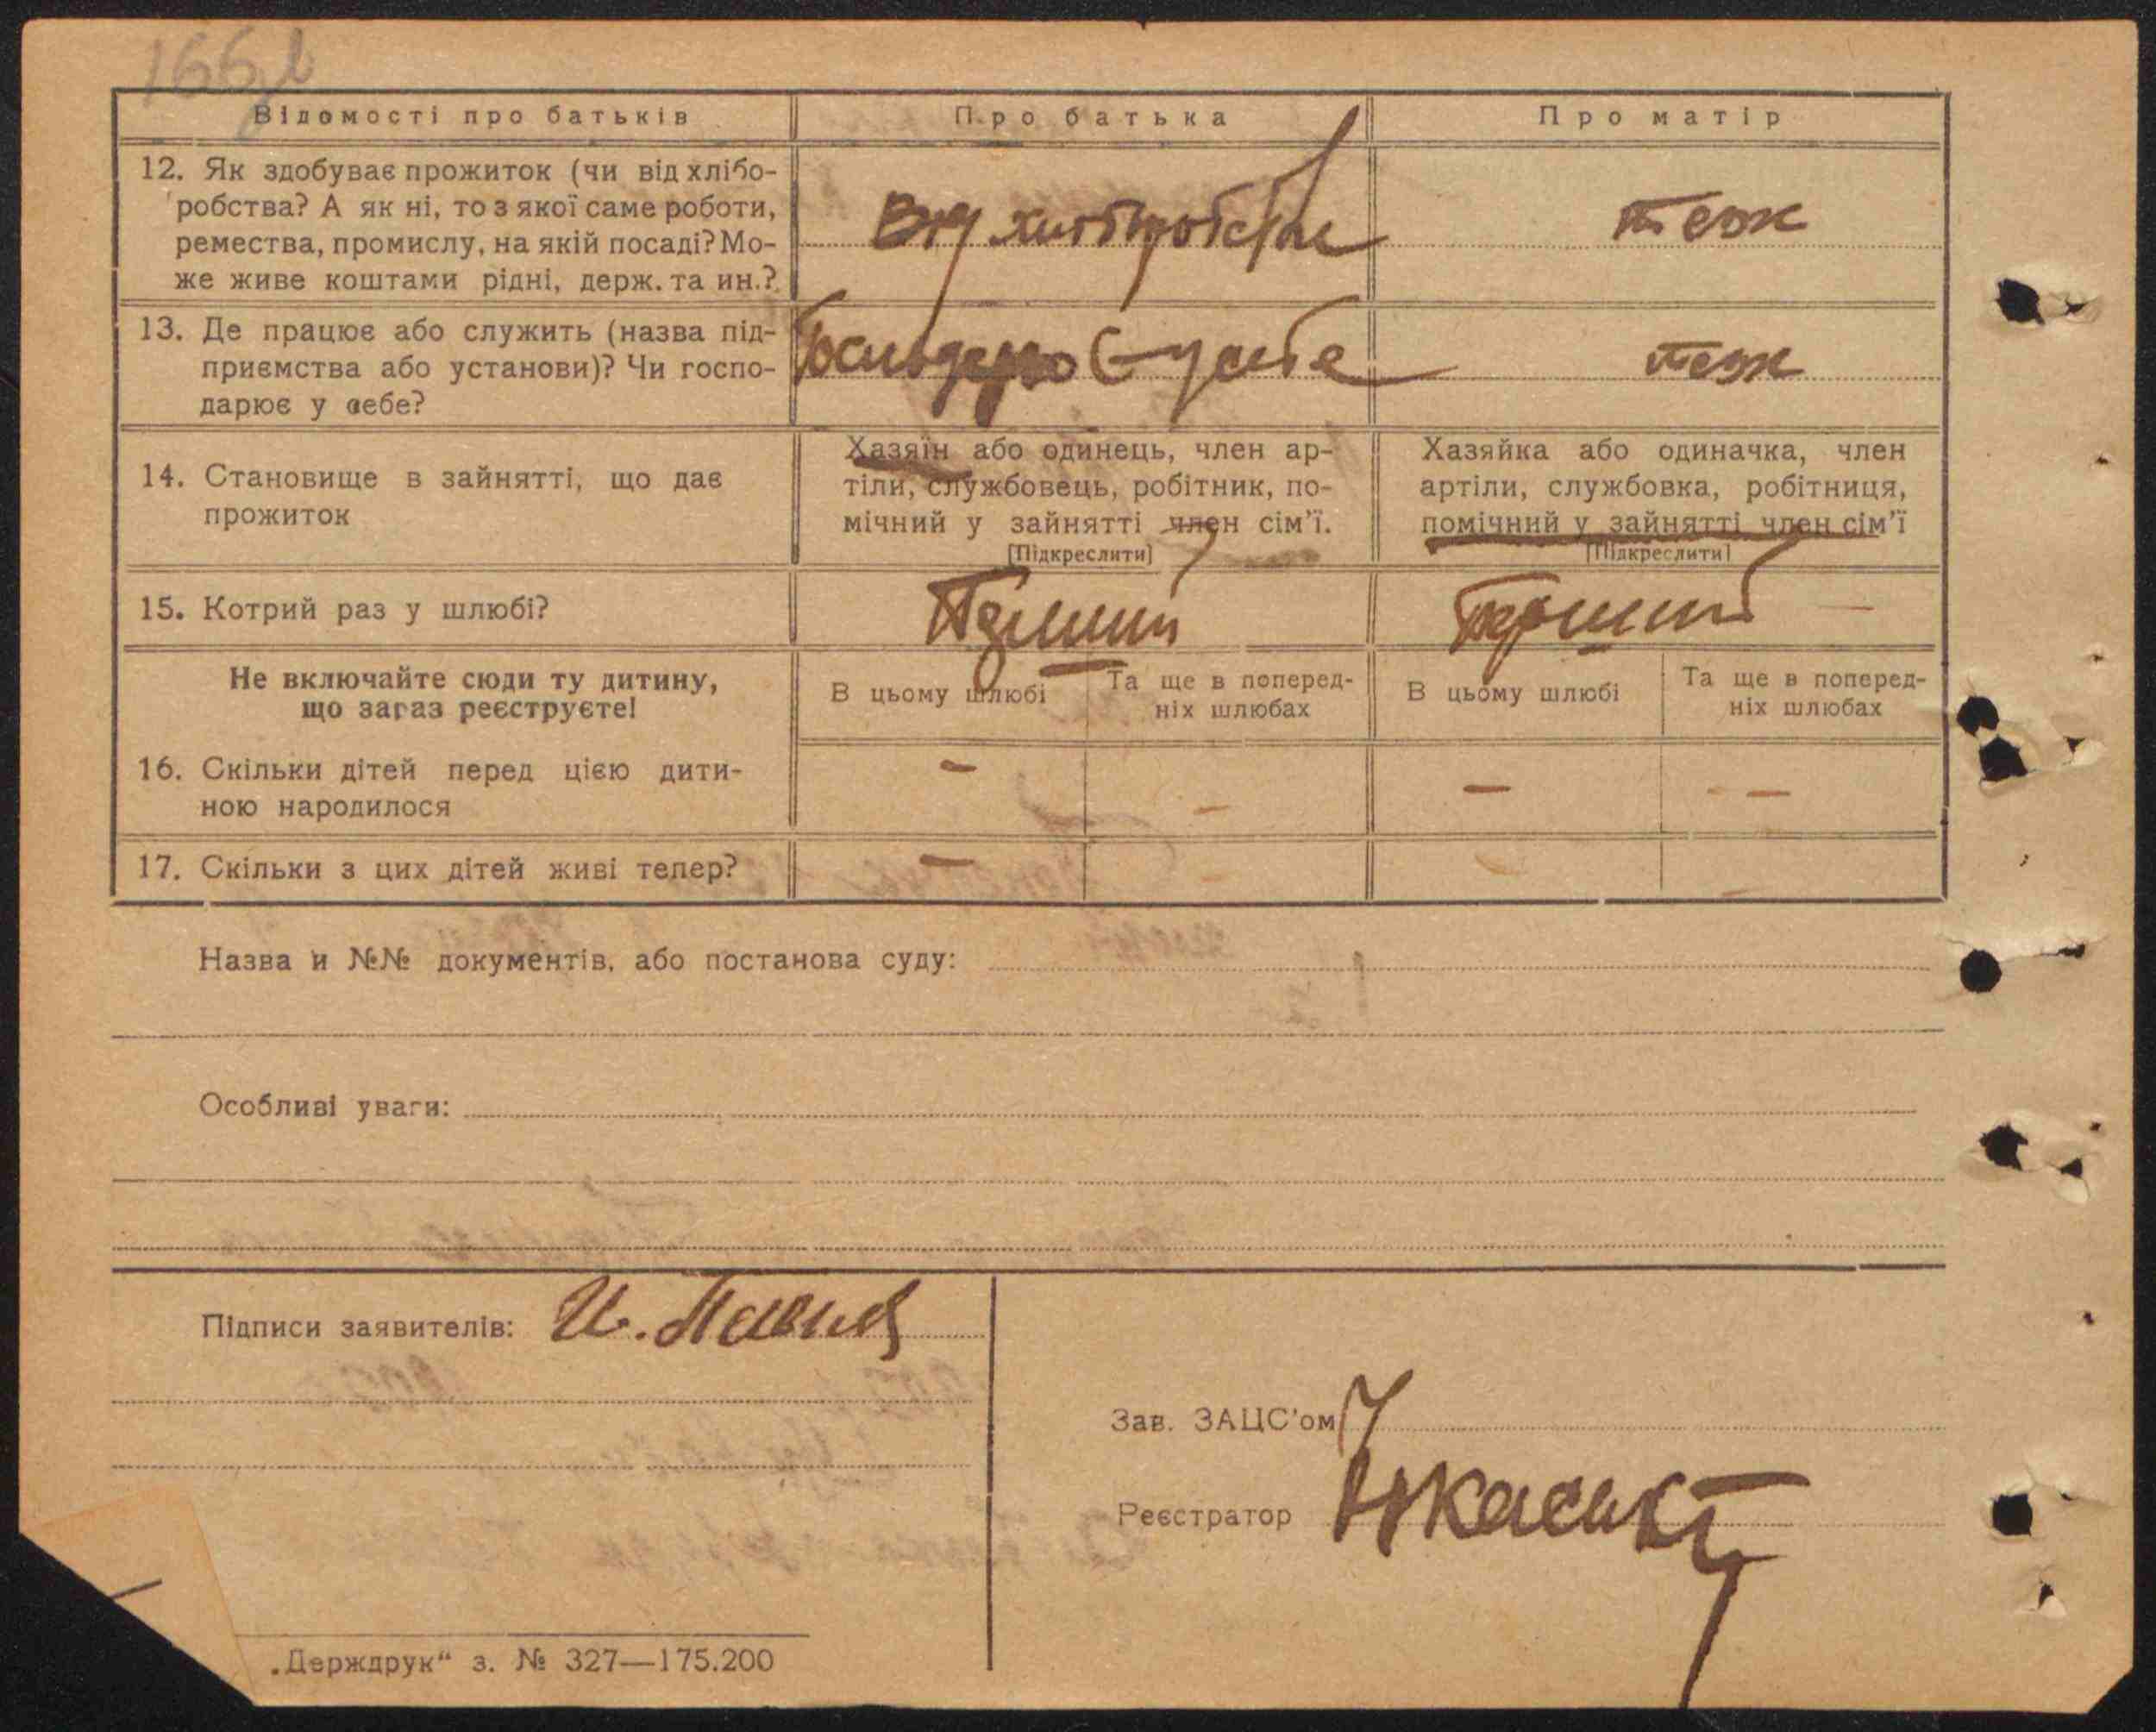 Відомості про батьків Про батька Про матір
12. Як здобуває прожиток (чи від хлібо-
робства? А як ні, то з якої саме роботи,
ремества, промислу, на якій посаді? Мо-
же живе коштами рідні, держ. та ин.?
Від хліборобства теж
13. Де працює або служить (назва під-
приємства або установи)? Чи госпо-
дарює у себе?
у себе теж
14. Становище в зайнятті, що дає
прожиток
Хазяїн або одинець, член ар-
тіли, службовець, робітник, по-
мічний у зайнятті член сім'ї.
[Підкреслити]
Хазяйка або одиначка, член
артіли, службовка, робітниця,
помічний у зайнятті член сім'ї
[Підкреслити]
15. Котрий раз у шлюбі? Перший Перший —
Не включайте сюди ту дитину,
що зараз реєструєте!
В цьому шлюбі
Та ще в поперед-
ніх шлюбах
В цьому шлюбі
Та ще в поперед-
ніх шлюбах
16. Скільки дітей перед цією дити-
ною народилося
— — — —
17. Скільки з цих дітей живі тепер? — — — —
Назва й №№ документів, або постанова суду:
Особливі уваги:
Підписи заявителів:
Зав. ЗАЦС'ом
Реєстратор
„Держдрук“ з. № 327—175.200